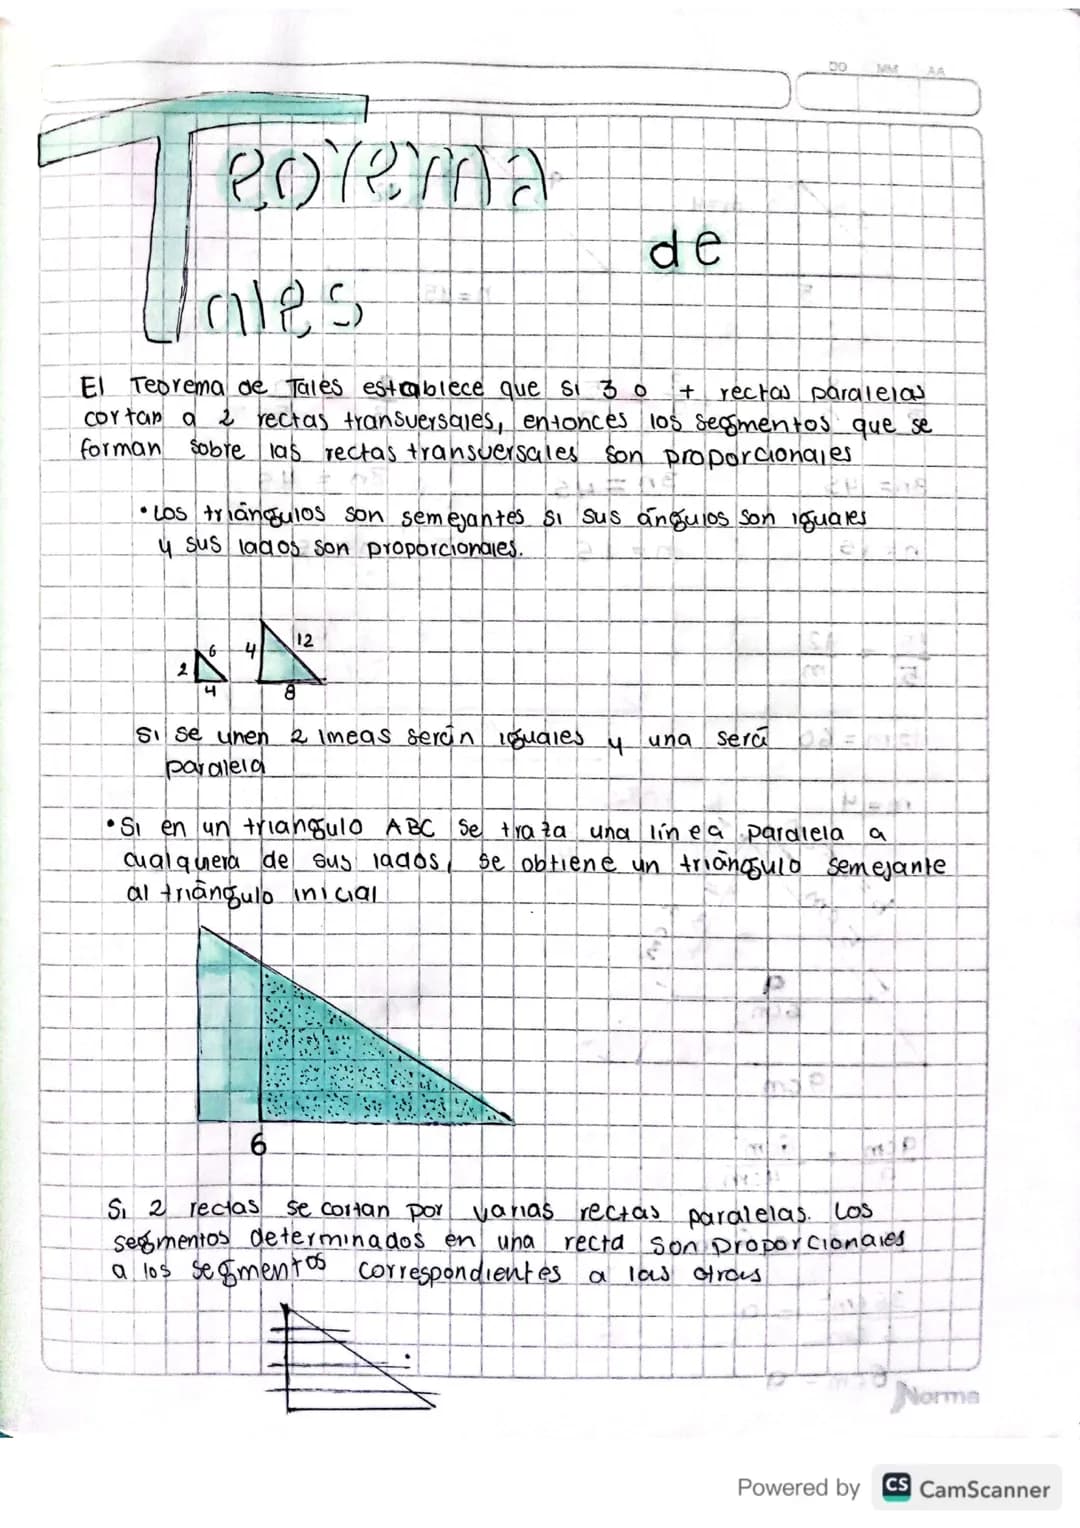 DD MM AA
Teorema
de
Tales
El Teorema de Tales establece que si 3 o + rectas paralelas
cortan a 2 rectas transversales, entonces los segmentos que se
forman sobre las rectas transversales son proporcionales
• Los triángulos son semejantes si sus ángulos son iguales
y sus lados son proporcionales.
2 6 4 4 12 8
Si se unen 2 lineas serán iguales y una será
paralela
• Si en un triangulo ABC se traza una línea paralela a
cualquiera de sus lados, se obtiene un triángulo semejante
al triángulo inicial
6
Si 2 rectas se cortan por varias rectas paralelas. Los
segmentos determinados en una recta son proporcionales
a los segmentos correspondientes a las otras
Norma
Powered by CS CamScanner